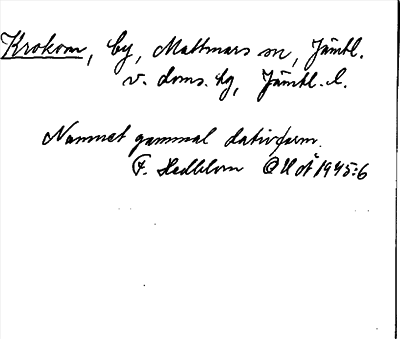 Krokom, by, Mattmars sn, Jämtl.
v. doms. hg, Jämtl. l.
Namnet gammal dativform.
F. Hedblom UUÅ 1945:6